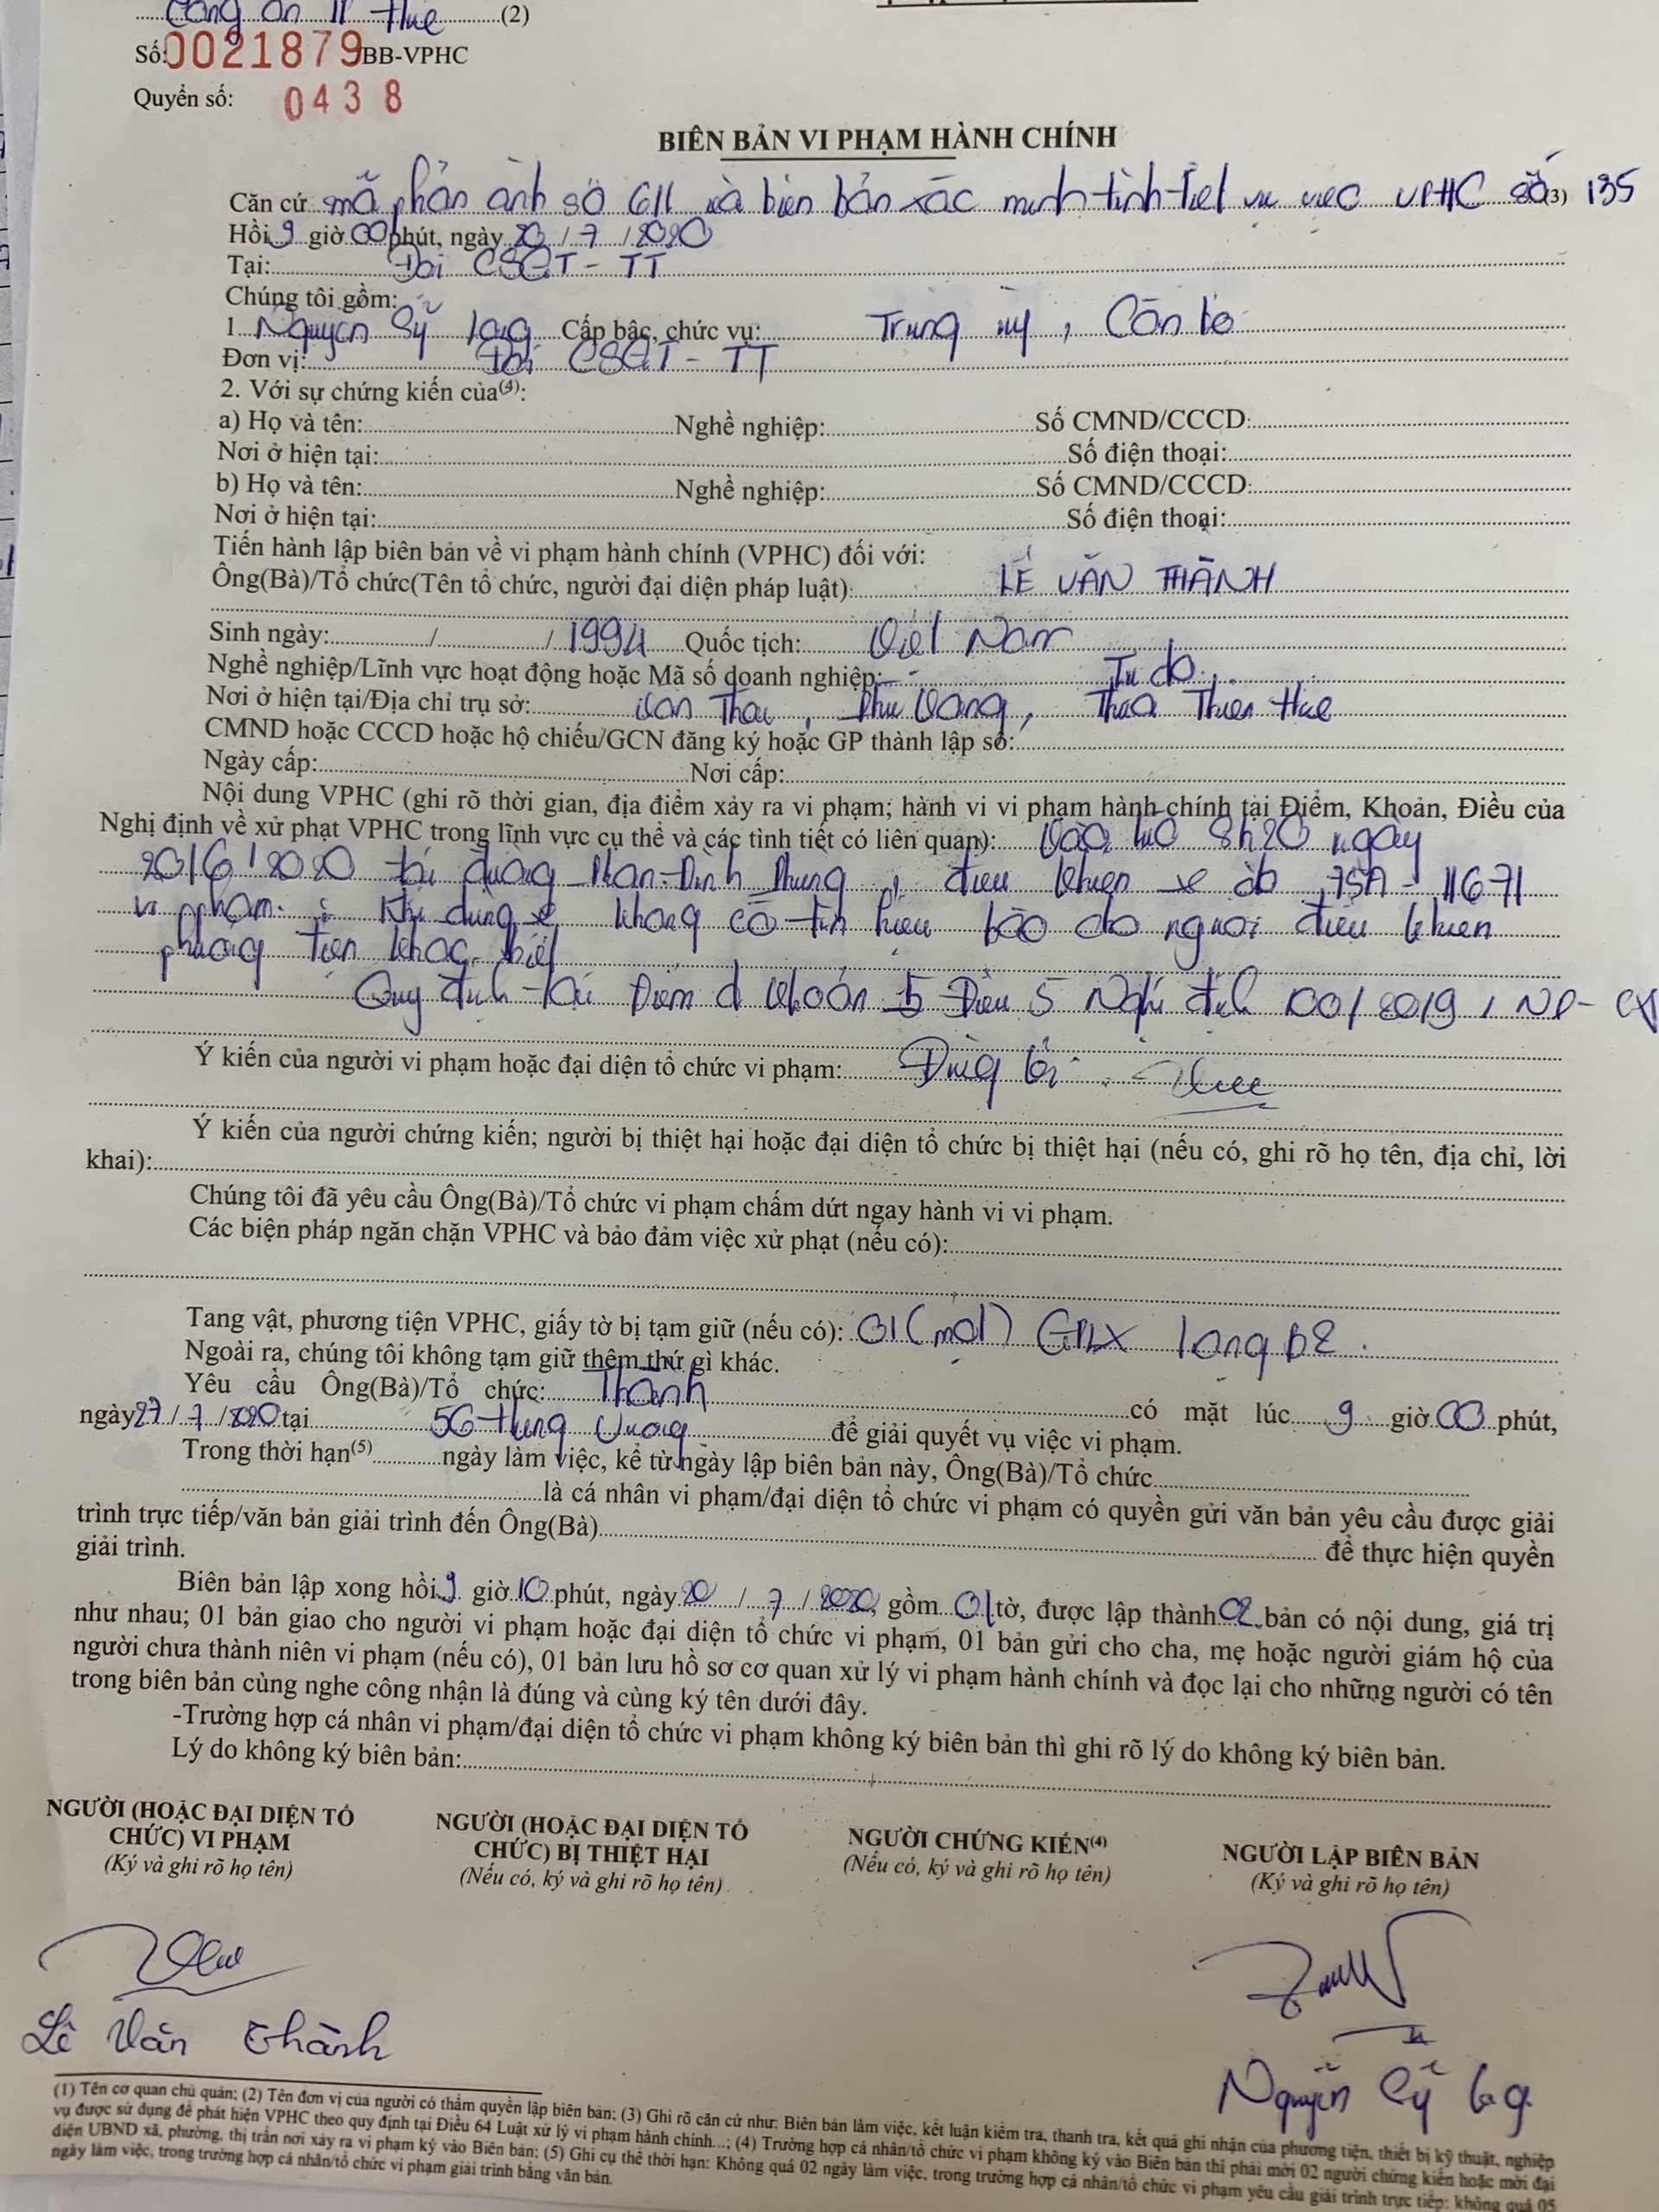 Công an TP Huế (2)
Số: 0021879/BB-VPHC
Quyển số: 0438
BIÊN BẢN VI PHẠM HÀNH CHÍNH
Căn cứ mã phản ánh số 611 và biên bản xác minh tình tiết vụ việc VPHC số (3) 135
Hồi 9 giờ 00 phút, ngày 20/7/2020
Tại: Đội CSGT-TT
Chúng tôi gồm:
1. Nguyễn Sỹ Cấp bậc, chức vụ: Trung úy, Cán bộ
Đơn vị: Đội CSGT-TT
2. Với sự chứng kiến của(4):
a) Họ và tên: Nghề nghiệp: Số CMND/CCCD:
Nơi ở hiện tại: Số điện thoại:
b) Họ và tên: Nghề nghiệp: Số CMND/CCCD:
Nơi ở hiện tại: Số điện thoại:
Tiến hành lập biên bản về vi phạm hành chính (VPHC) đối với:
Ông(Bà)/Tổ chức(Tên tổ chức, người đại diện pháp luật): LÊ VĂN THÀNH
Sinh ngày: / /1994 Quốc tịch: Việt Nam
Nghề nghiệp/Lĩnh vực hoạt động hoặc Mã số doanh nghiệp: Tự do
Nơi ở hiện tại/Địa chỉ trụ sở: Phú Vang, Thừa Thiên Huế
CMND hoặc CCCD hoặc hộ chiếu/GCN đăng ký hoặc GP thành lập số:
Ngày cấp: Nơi cấp:
Nội dung VPHC (ghi rõ thời gian, địa điểm xảy ra vi phạm; hành vi vi phạm hành chính tại Điểm, Khoản, Điều của
Nghị định về xử phạt VPHC trong lĩnh vực cụ thể và các tình tiết có liên quan): Vào lúc 8h20 ngày
20/6/2020 tại đường Phan Đình Phùng, điều khiển xe ôtô 75A-11671
vi phạm: Khi dừng xe không có tín hiệu báo cho người điều khiển
phương tiện khác biết
Quy định tại Điểm d khoản 5 Điều 5 Nghị định 100/2019/NĐ-CP
Ý kiến của người vi phạm hoặc đại diện tổ chức vi phạm: Đúng lỗi
Ý kiến của người chứng kiến; người bị thiệt hại hoặc đại diện tổ chức bị thiệt hại (nếu có, ghi rõ họ tên, địa chỉ, lời
khai):
Chúng tôi đã yêu cầu Ông(Bà)/Tổ chức vi phạm chấm dứt ngay hành vi vi phạm.
Các biện pháp ngăn chặn VPHC và bảo đảm việc xử phạt (nếu có):
Tang vật, phương tiện VPHC, giấy tờ bị tạm giữ (nếu có): 01 (một) GPLX hạng B2.
Ngoài ra, chúng tôi không tạm giữ thêm thứ gì khác.
Yêu cầu Ông(Bà)/Tổ chức: Thành có mặt lúc 9 giờ 00 phút,
ngày 27/7/2020 tại 56 Hùng Vương để giải quyết vụ việc vi phạm.
Trong thời hạn(5) ngày làm việc, kể từ ngày lập biên bản này, Ông(Bà)/Tổ chức
là cá nhân vi phạm/đại diện tổ chức vi phạm có quyền gửi văn bản yêu cầu được giải
trình trực tiếp/văn bản giải trình đến Ông(Bà) để thực hiện quyền
giải trình.
Biên bản lập xong hồi 9 giờ 10 phút, ngày 20/7/2020, gồm 01 tờ, được lập thành 02 bản có nội dung, giá trị
như nhau; 01 bản giao cho người vi phạm hoặc đại diện tổ chức vi phạm, 01 bản gửi cho cha, mẹ hoặc người giám hộ của
người chưa thành niên vi phạm (nếu có), 01 bản lưu hồ sơ cơ quan xử lý vi phạm hành chính và đọc lại cho những người có tên
trong biên bản cùng nghe công nhận là đúng và cùng ký tên dưới đây.
-Trường hợp cá nhân vi phạm/đại diện tổ chức vi phạm không ký biên bản thì ghi rõ lý do không ký biên bản.
Lý do không ký biên bản:
NGƯỜI (HOẶC ĐẠI DIỆN TỔ
CHỨC) VI PHẠM
(Ký và ghi rõ họ tên)
NGƯỜI (HOẶC ĐẠI DIỆN TỔ
CHỨC) BỊ THIỆT HẠI
(Nếu có, ký và ghi rõ họ tên)
NGƯỜI CHỨNG KIẾN(4)
(Nếu có, ký và ghi rõ họ tên)
NGƯỜI LẬP BIÊN BẢN
(Ký và ghi rõ họ tên)
Lê Văn Thành
Nguyễn Sỹ
(1) Tên cơ quan chủ quản; (2) Tên đơn vị của người có thẩm quyền lập biên bản; (3) Ghi rõ căn cứ như: Biên bản làm việc, kết luận kiểm tra, thanh tra, kết quả ghi nhận của phương tiện, thiết bị kỹ thuật, nghiệp
vụ được sử dụng để phát hiện VPHC theo quy định tại Điều 64 Luật xử lý vi phạm hành chính...; (4) Trường hợp cá nhân/tổ chức vi phạm không ký vào Biên bản thì phải mời 02 người chứng kiến hoặc mời đại
diện UBND xã, phường, thị trấn nơi xảy ra vi phạm ký vào Biên bản; (5) Ghi cụ thể thời hạn: Không quá 02 ngày làm việc, trong trường hợp cá nhân/tổ chức vi phạm yêu cầu giải trình trực tiếp; không quá 05
ngày làm việc, trong trường hợp cá nhân/tổ chức vi phạm giải trình bằng văn bản.